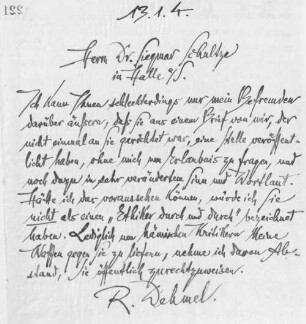 221
13.1.4.
Herrn Dr. Siegmar Schultze
in Halle a/S.
Ich kann Ihnen schlechterdings nur mein Befremden
darüber äussern, daß sie aus einem Brief von mir, der
nicht einmal an sie gerichtet war, eine Stelle veröffent-
licht haben, ohne mich um Erlaubnis zu fragen, und
noch dazu in sehr verändertem Sinn und Wortlaut.
Hätte ich das voraussehen können, würde ich Sie
nicht als einen „Ethiker durch und durch" bezeichnet
haben. Lediglich um hämischen Kritikern keine
Waffen gegen Sie zu liefern, nehme ich davon Ab-
stand, Sie öffentlich zurechtzuweisen.
R. Dehmel.